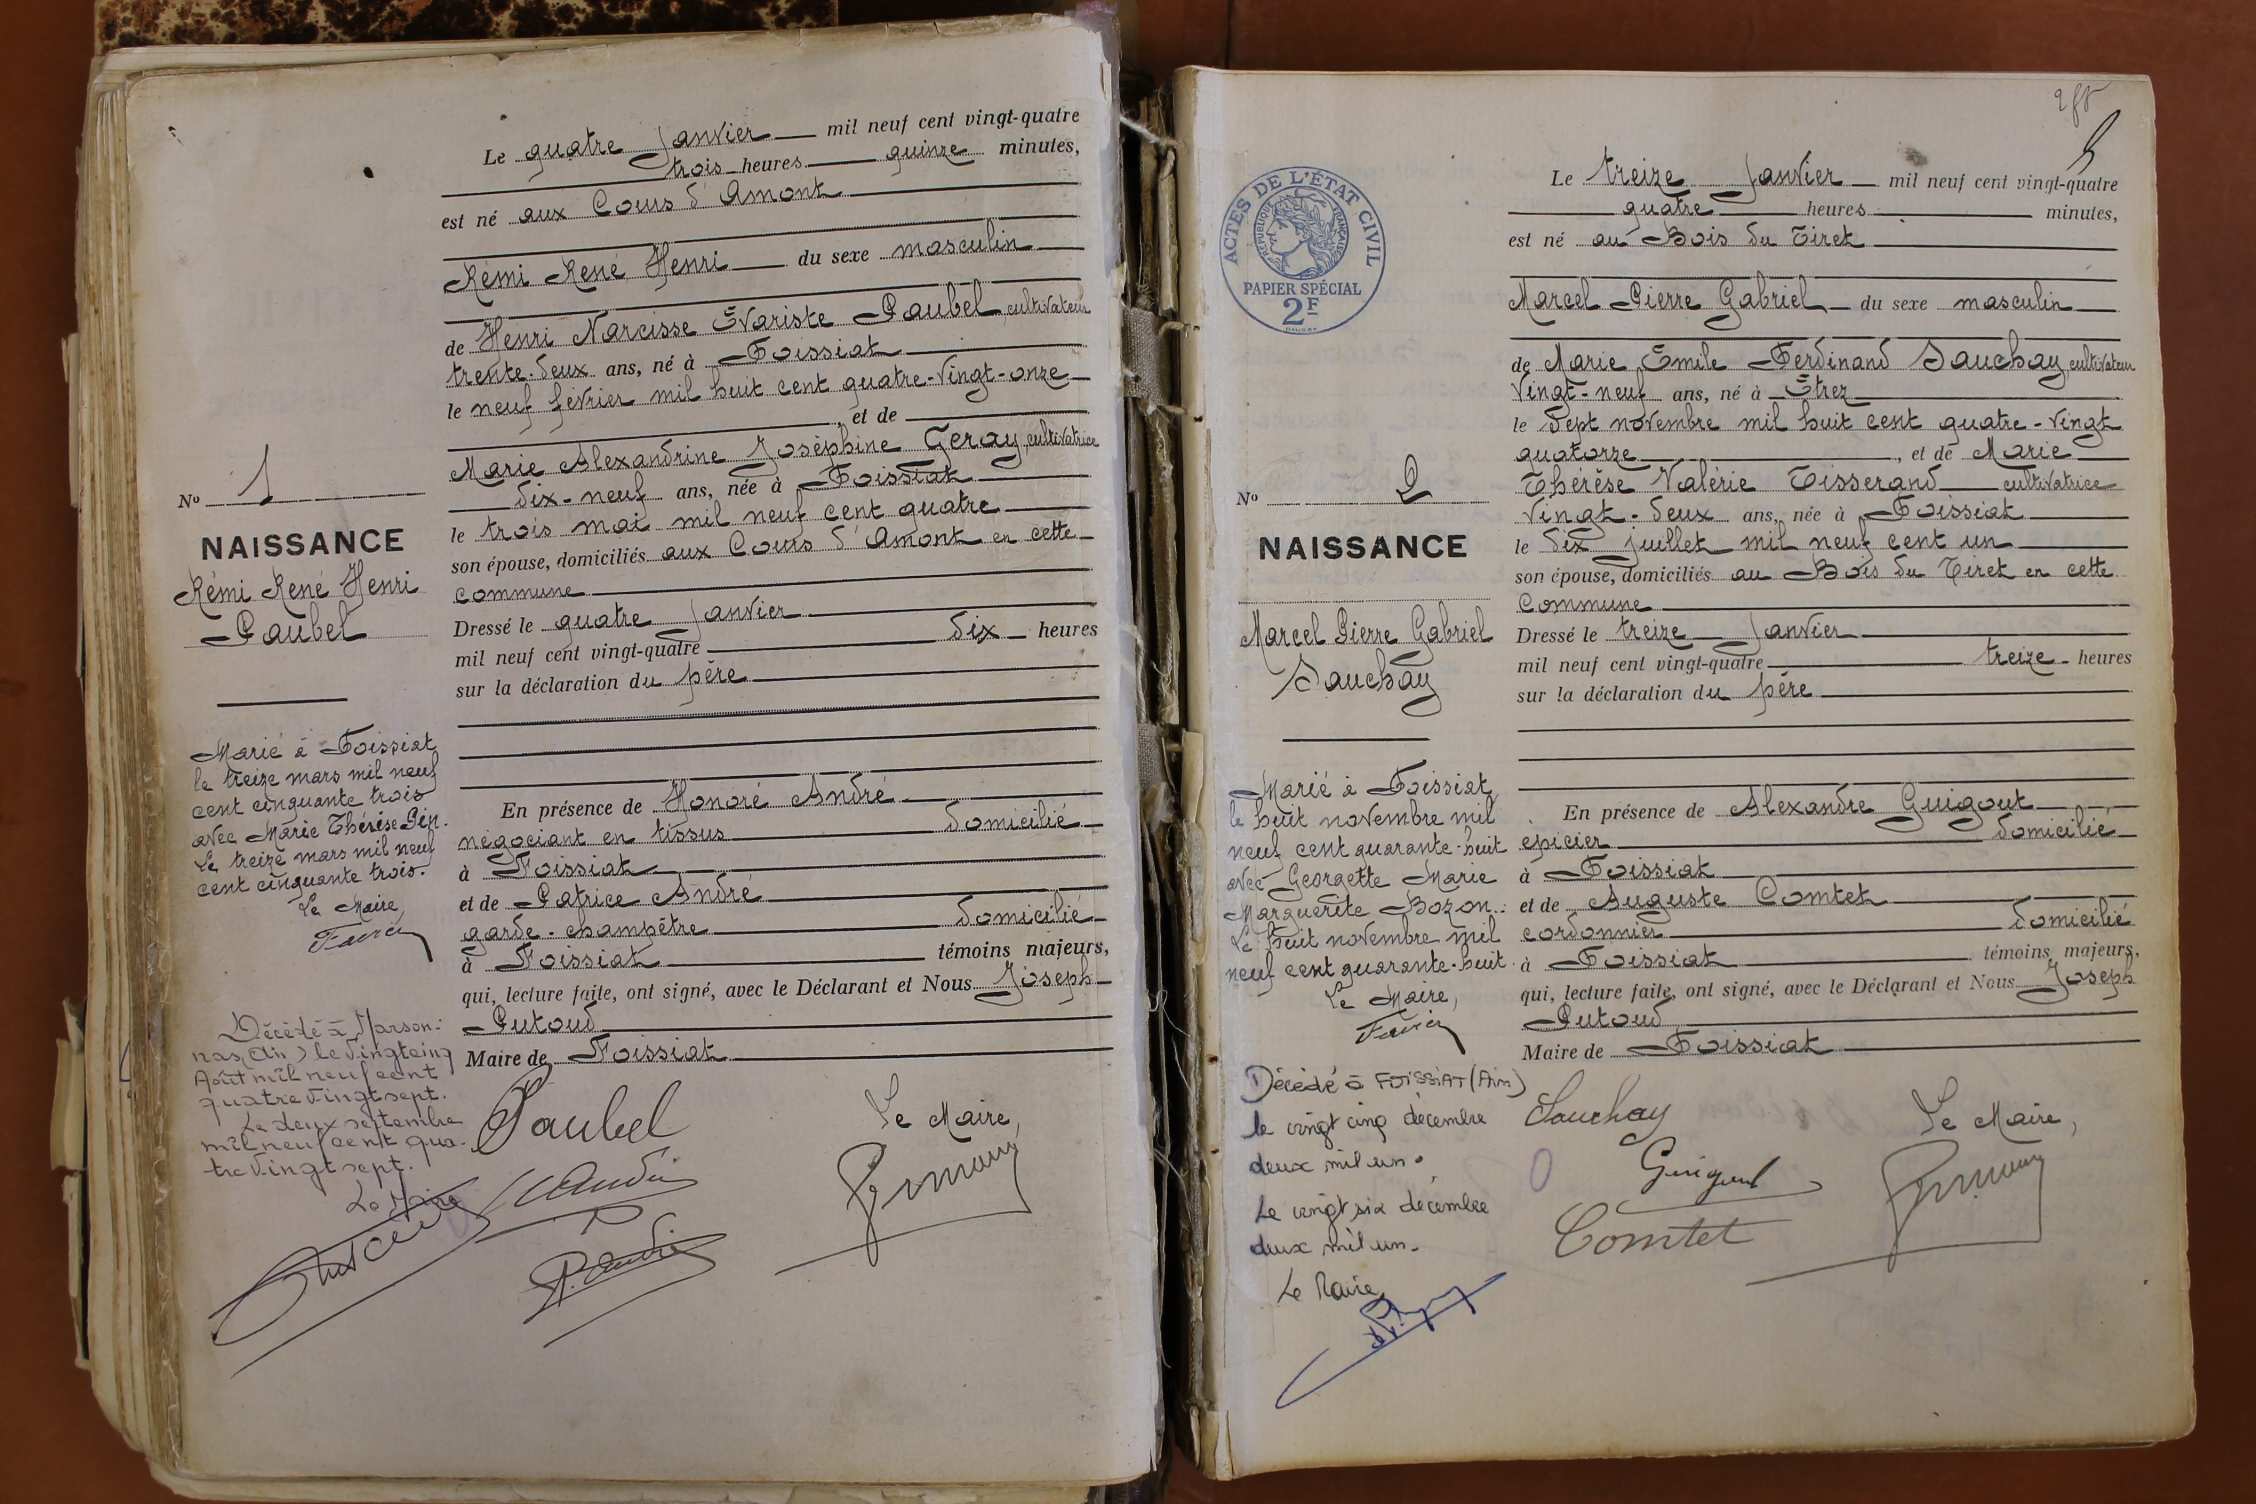 Le quatre Janvier mil neuf cent vingt-quatre
trois heures quinze minutes,
est né aux Cours d'Amont
Rémi René Henri du sexe masculin
de Henri Narcisse Évariste Paubel, cultivateur
trente-deux ans, né à Foissiat
le neuf février mil huit cent quatre-vingt-onze
, et de
Marie Alexandrine Joséphine Geray, cultivatrice
dix-neuf ans, née à Foissiat
le trois mai mil neuf cent quatre
son épouse, domiciliés aux Cours d'Amont en cette
commune
Dressé le quatre Janvier
mil neuf cent vingt-quatre dix heures
sur la déclaration du père
En présence de Honoré André
négociant en tissus domicilié
à Foissiat
et de Patrice André
garde-champêtre domicilié
à Foissiat témoins majeurs,
qui, lecture faite, ont signé, avec le Déclarant et Nous Joseph
Putoud
Maire de Foissiat
Paubel
Le Maire,
No 1
NAISSANCE
Rémi René Henri
Paubel
Marié à Foissiat
le treize mars mil neuf
cent cinquante trois
avec Marie Thérèse Pin.
Le treize mars mil neuf
cent cinquante trois.
Le Maire,
Décédé à Marson-
nas (Ain) le vingt cinq
Août mil neuf cent
quatre vingt sept.
Le deux septembre
mil neuf cent qua-
tre vingt sept.
Le Maire
5
ACTES DE L'ÉTAT CIVIL
RÉPUBLIQUE FRANÇAISE
PAPIER SPÉCIAL
2F
Le treize Janvier mil neuf cent vingt-quatre
quatre heures minutes,
est né au Bois du Tiret
Marcel Pierre Gabriel du sexe masculin
de Marie Émile Ferdinand Sauchay, cultivateur
vingt-neuf ans, né à Étrez
le sept novembre mil huit cent quatre-vingt
quatorze, et de Marie
Thérèse Valérie Tisserand cultivatrice
vingt-deux ans, née à Foissiat
le dix juillet mil neuf cent un
son épouse, domiciliés au Bois du Tiret en cette
commune
Dressé le treize Janvier
mil neuf cent vingt-quatre treize heures
sur la déclaration du père
En présence de Alexandre Guigout
épicier domicilié
à Foissiat
et de Auguste Comtet
cordonnier domicilié
à Foissiat témoins majeurs,
qui, lecture faite, ont signé, avec le Déclarant et Nous Joseph
Putoud
Maire de Foissiat
Sauchay
Le Maire,
Comtet
No 2
NAISSANCE
Marcel Pierre Gabriel
Sauchay
Marié à Foissiat
le huit novembre mil
neuf cent quarante-huit
avec Georgette Marie
Marguerite Bozon.
Le huit novembre mil
neuf cent quarante-huit.
Le Maire,
Décédé à FOISSIAT (Ain)
le vingt cinq décembre
deux mil un.
Le vingt six décembre
deux mil un.
Le Maire